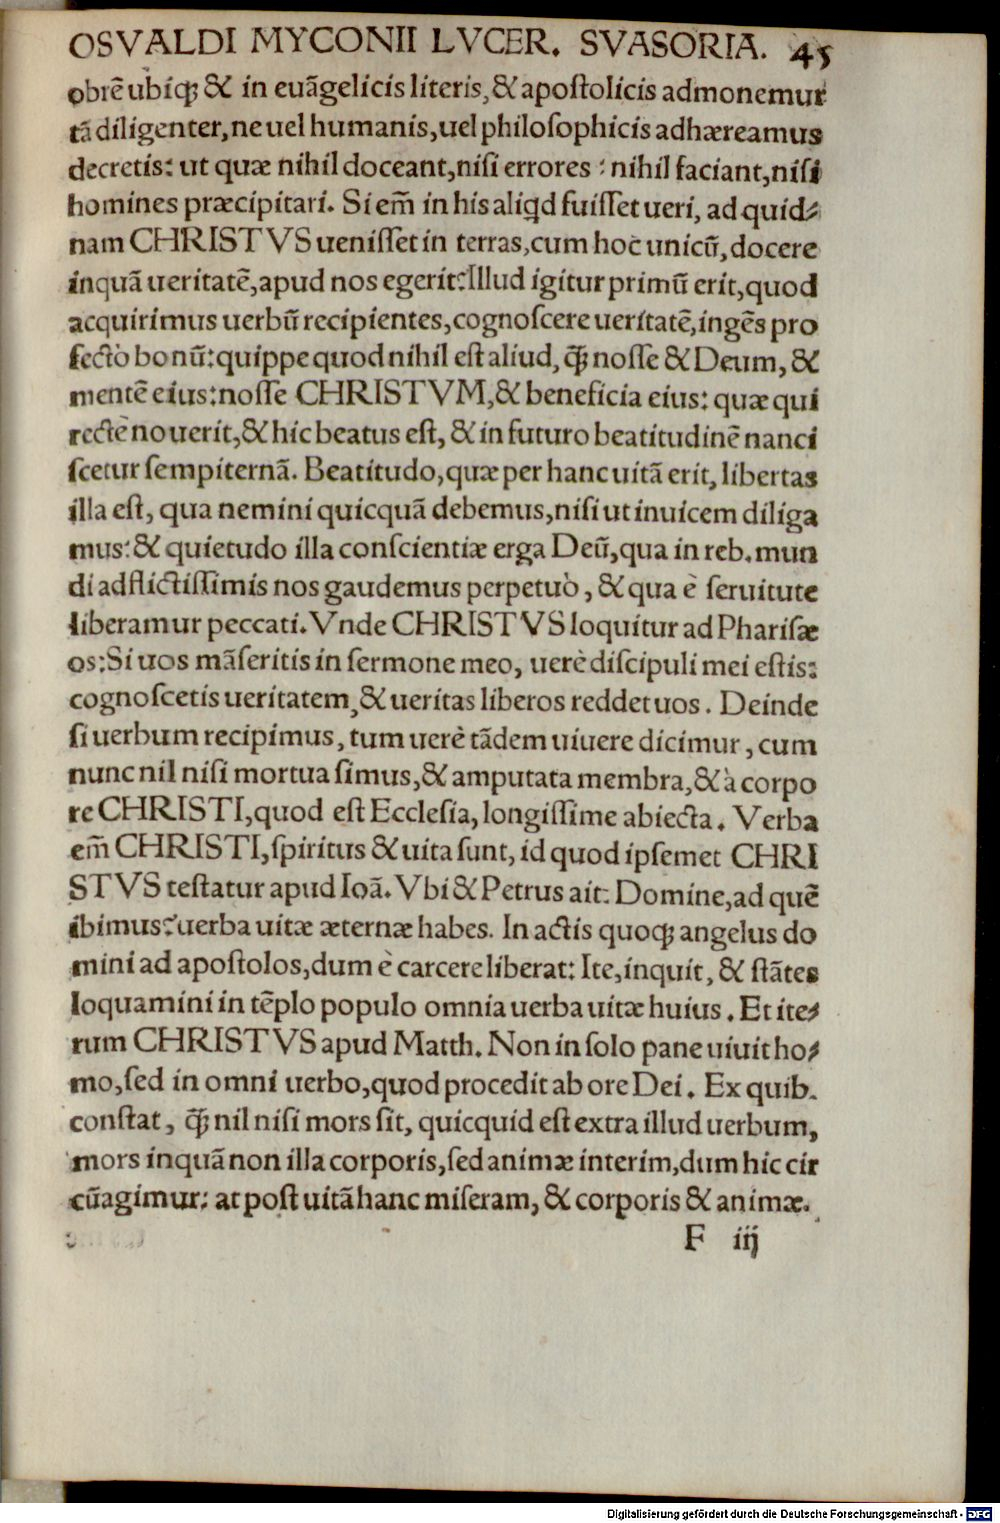 OSVALDI MYCONII LVCER. SVASORIA. 45
obrē ubiq; & in euāgelicis literis, & apostolicis admonemur
tā diligenter, ne uel humanis, uel philosophicis adhæreamus
decretis: ut quæ nihil doceant, nisi errores : nihil faciant, nisi
homines præcipitari. Si em̄ in his aliqd fuisset ueri, ad quid⸗
nam CHRISTVS uenisset in terras, cum hoc unicū, docere
inquā ueritatē, apud nos egerit? Illud igitur primū erit, quod
acquirimus uerbū recipientes, cognoscere ueritatē, ingēs pro
fectò bonū: quippe quod nihil est aliud, q̃; nosse & Deum, &
mentē eius: nosse CHRISTVM, & beneficia eius: quæ qui
rectè nouerit, & hic beatus est, & in futuro beatitudinē nanci
scetur sempiternā. Beatitudo, quæ per hanc uitā erit, libertas
illa est, qua nemini quicquā debemus, nisi ut inuicem diliga
mus: & quietudo illa conscientiæ erga Deū, qua in reb. mun
di adflictissimis nos gaudemus perpetuò, & qua è seruitute
liberamur peccati. Vnde CHRISTVS loquitur ad Pharisæ
os: Si uos māseritis in sermone meo, uerè discipuli mei estis:
cognoscetis ueritatem, & ueritas liberos reddet uos. Deinde
si uerbum recipimus, tum uerè tādem uiuere dicimur, cum
nunc nil nisi mortua simus, & amputata membra, & à corpo
re CHRISTI, quod est Ecclesia, longissime abiecta. Verba
em̄ CHRISTI, spiritus & uita sunt, id quod ipsemet CHRI
STVS testatur apud Ioā. Vbi & Petrus ait: Domine, ad quē
ibimus? uerba uitæ æternæ habes. In actis quoq; angelus do
mini ad apostolos, dum è carcere liberat: Ite, inquit, & stātes
loquamini in tēplo populo omnia uerba uitæ huius. Et ite⸗
rum CHRISTVS apud Matth. Non in solo pane uiuit ho⸗
mo, sed in omni uerbo, quod procedit ab ore Dei. Ex quib.
constat, q̃; nil nisi mors sit, quicquid est extra illud uerbum,
mors inquā non illa corporis, sed animæ interim, dum hic cir
cūagimur: at post uitā hanc miseram, & corporis & animæ.
F iij
Digitalisierung gefördert durch die Deutsche Forschungsgemeinschaft - DFG